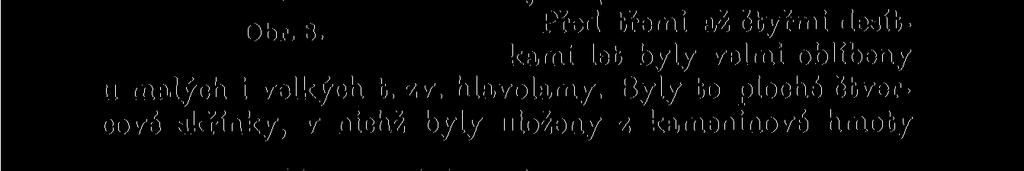 Obr. 8.
Před třemi až čtyřmi desít-
kami let byly velmi oblíbeny
u malých i velkých t. zv. hlavolamy. Byly to ploché čtver-
cové skřínky, v nichž byly uloženy z kameninové hmoty